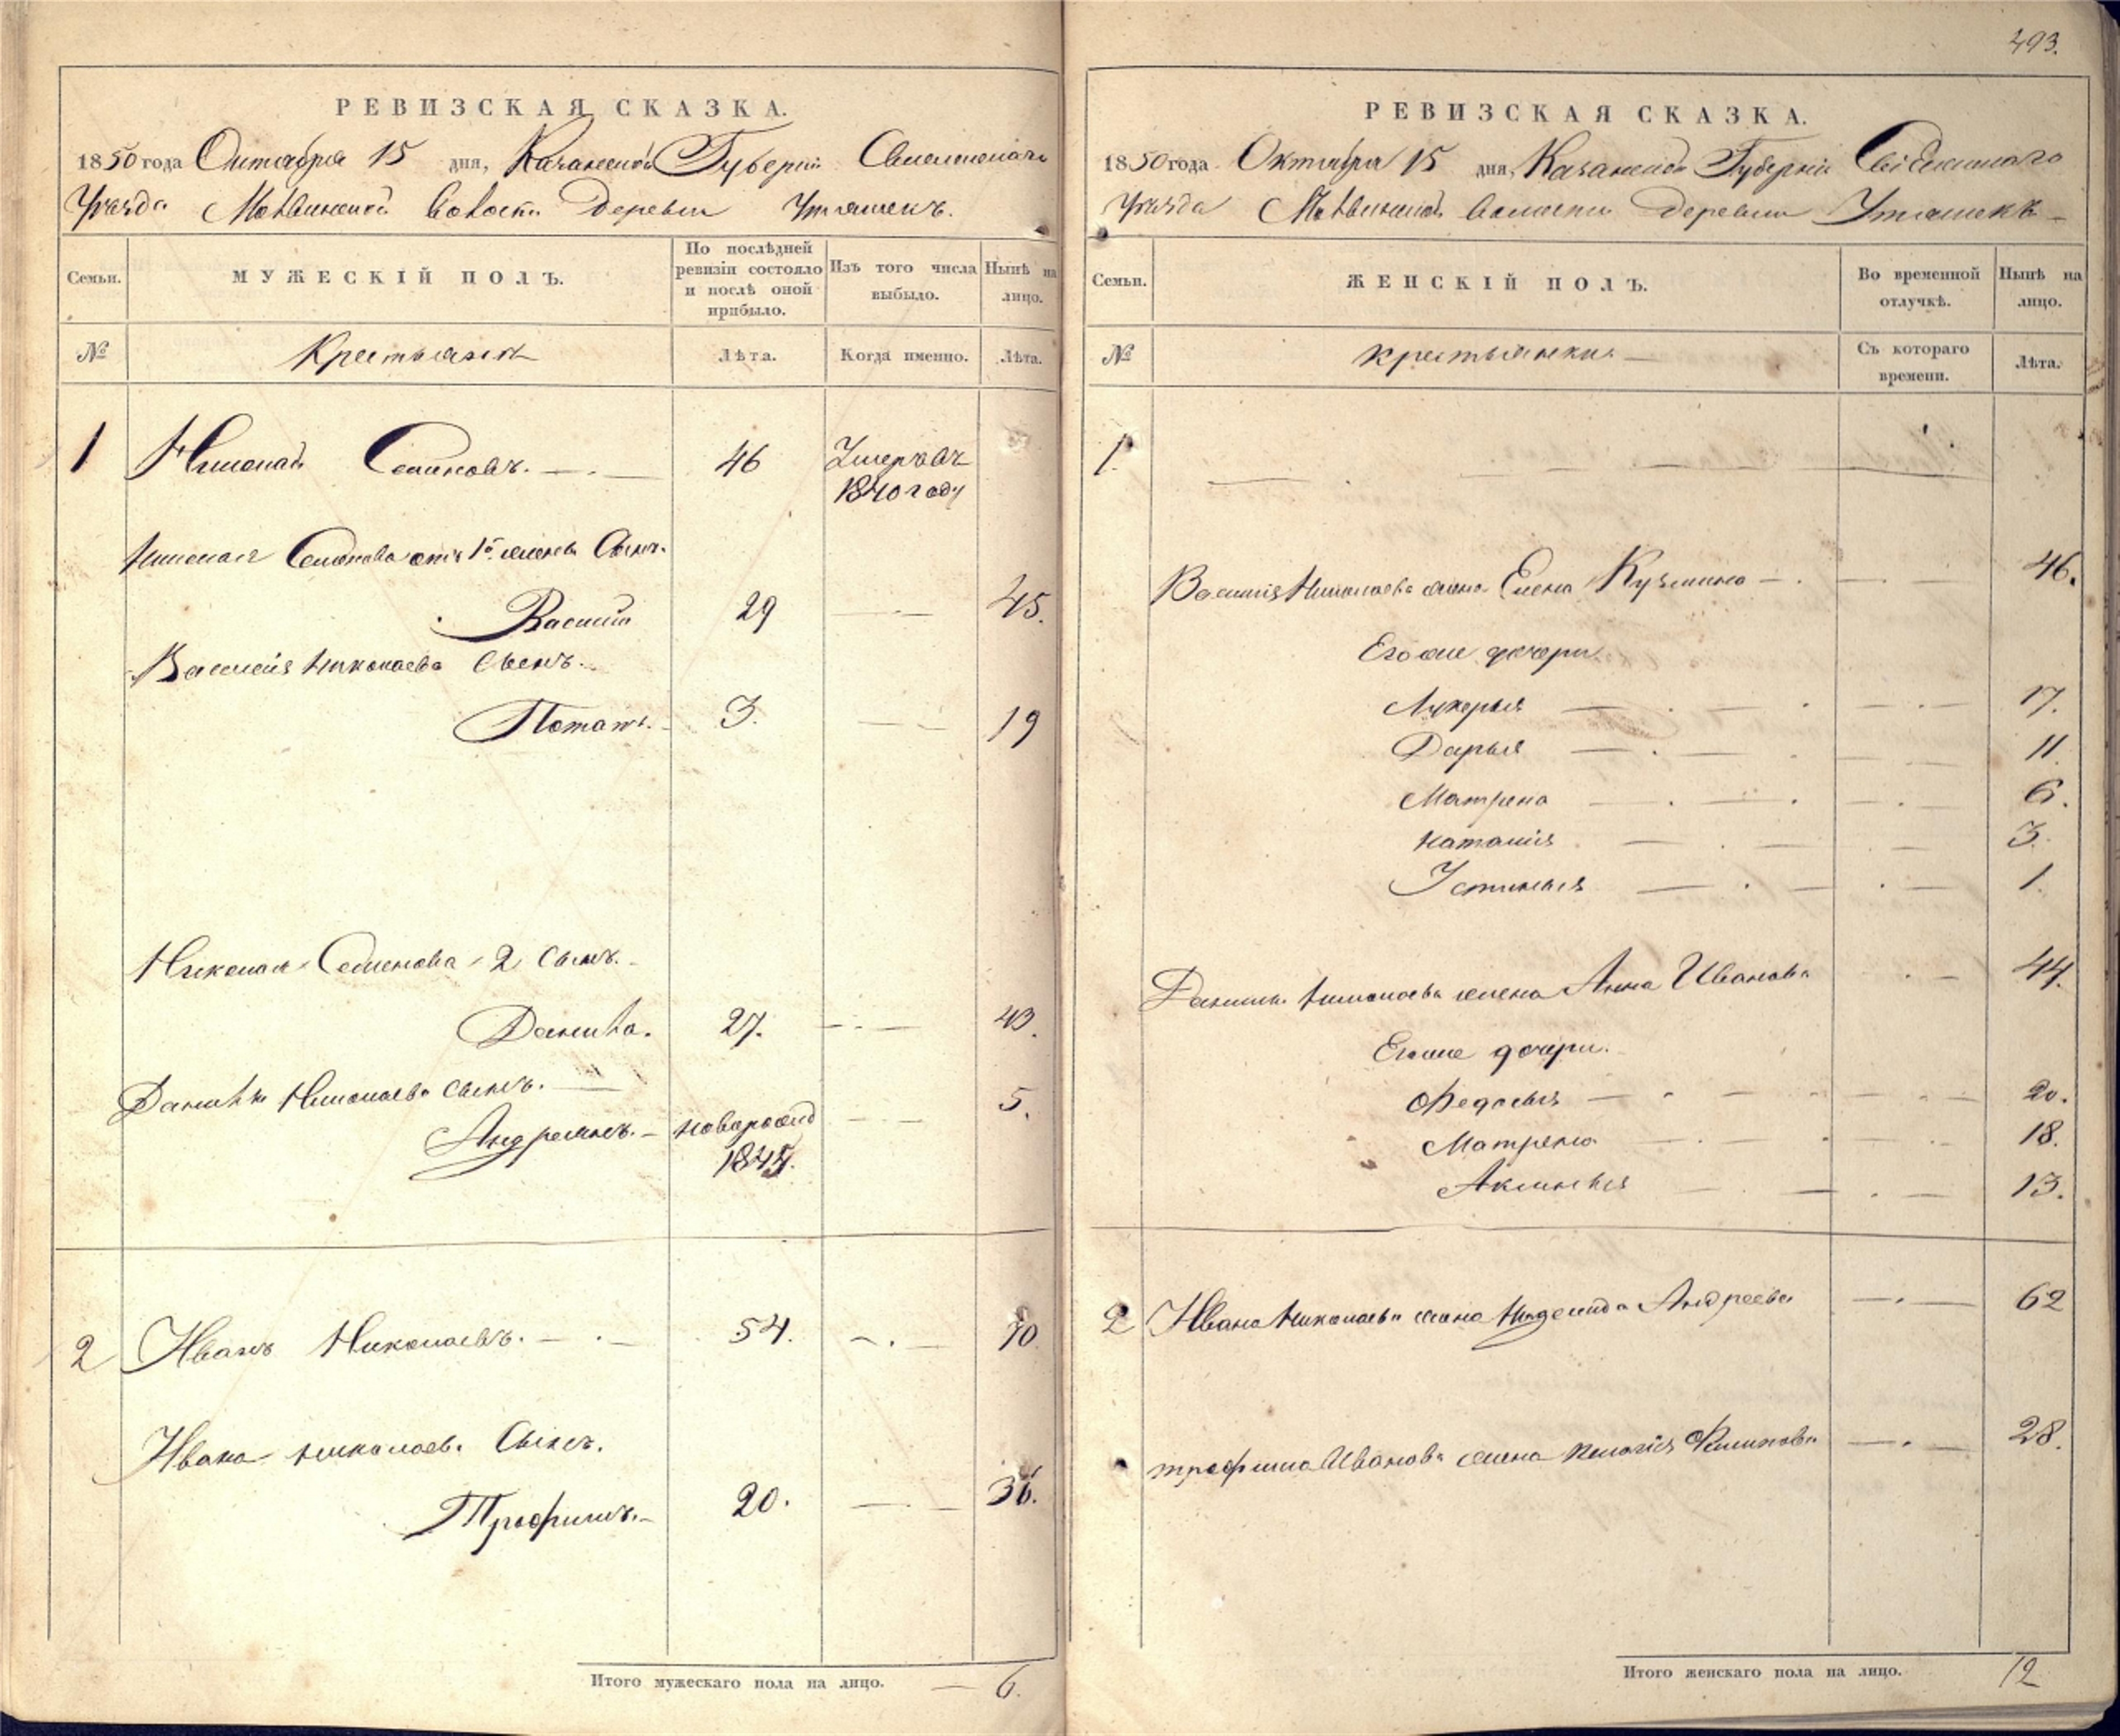 РЕВИЗСКАЯ СКАЗКА.
1850 года Октября 15 дня, Казанской Губернии
Уезда волости деревни Утяшекъ.
Семьи.
МУЖЕСКІЙ ПОЛЪ.
По послѣдней ревизіи состояло и послѣ оной прибыло.
Изъ того числа выбыло.
Нынѣ на лицо.
№
Крестьяне
Лѣта.
Когда именно.
Лѣта.
1 Николай Семеновъ. 46 Умеръ въ
1840 году
Николая Семенова отъ 1й жены Сынъ.
Василій 29 45.
Василія Николаева Сынъ.
Потапъ. 3. 19
Николая Семенова 2 сынъ.
Данила. 27. 43.
Данилы Николаева сынъ. 5.
Андреянъ. новорожд
1845.
2 Иванъ Николаевъ. 54. 70
Ивана Николаева Сынъ.
Трофимъ. 20. 36.
Итого мужескаго пола на лицо. 6.
493.
РЕВИЗСКАЯ СКАЗКА.
1850 года Октября 15 дня, Казанской Губерніи
Уезда волости деревни Утяшекъ
Семьи.
ЖЕНСКІЙ ПОЛЪ.
Во временной отлучкѣ.
Нынѣ на лицо.
№
крестьянки
Съ котораго времени.
Лѣта.
1.
Василія Николаева жена Елена Кузмина 46.
Его же дочери
Лукерья 17.
Дарья 11.
Матрена 6.
Наталія 3.
Устинья 1.
Данилы Николаева жена Анна Иванова 44.
Его же дочери.
Федосья 20.
Матрена 18.
Аксинья 13.
2 Ивана Николаева жена Андреева 62
Трофима Иванова жена Пелагія Филипова 28.
Итого женскаго пола на лицо. 12